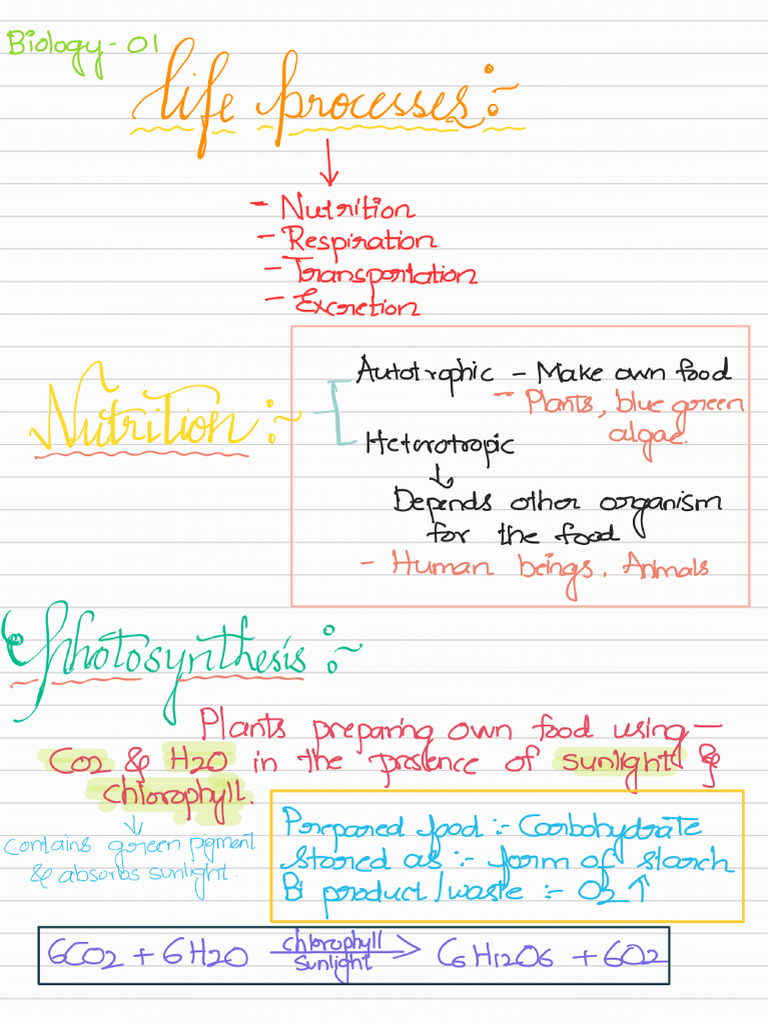 Biology - 01
Life processes :-
- Nutrition
- Respiration
- Transportation
- Excretion
Nutrition :-
Autotrophic - Make own food
- Plants, blue green
algae.
Heterotropic
↓
Depends other organism
for the food
- Human beings, Animals
Photosynthesis :-
Plants preparing own food using -
CO2 & H2O in the presence of sunlight &
chlorophyll.
contains green pigment
& absorbs sunlight.
Prepared food :- Carbohydrate
Stored as :- form of starch
Bi product/waste :- O2 ↑
6CO2 + 6H2O chlorophyll → C6H12O6 + 6O2
sunlight